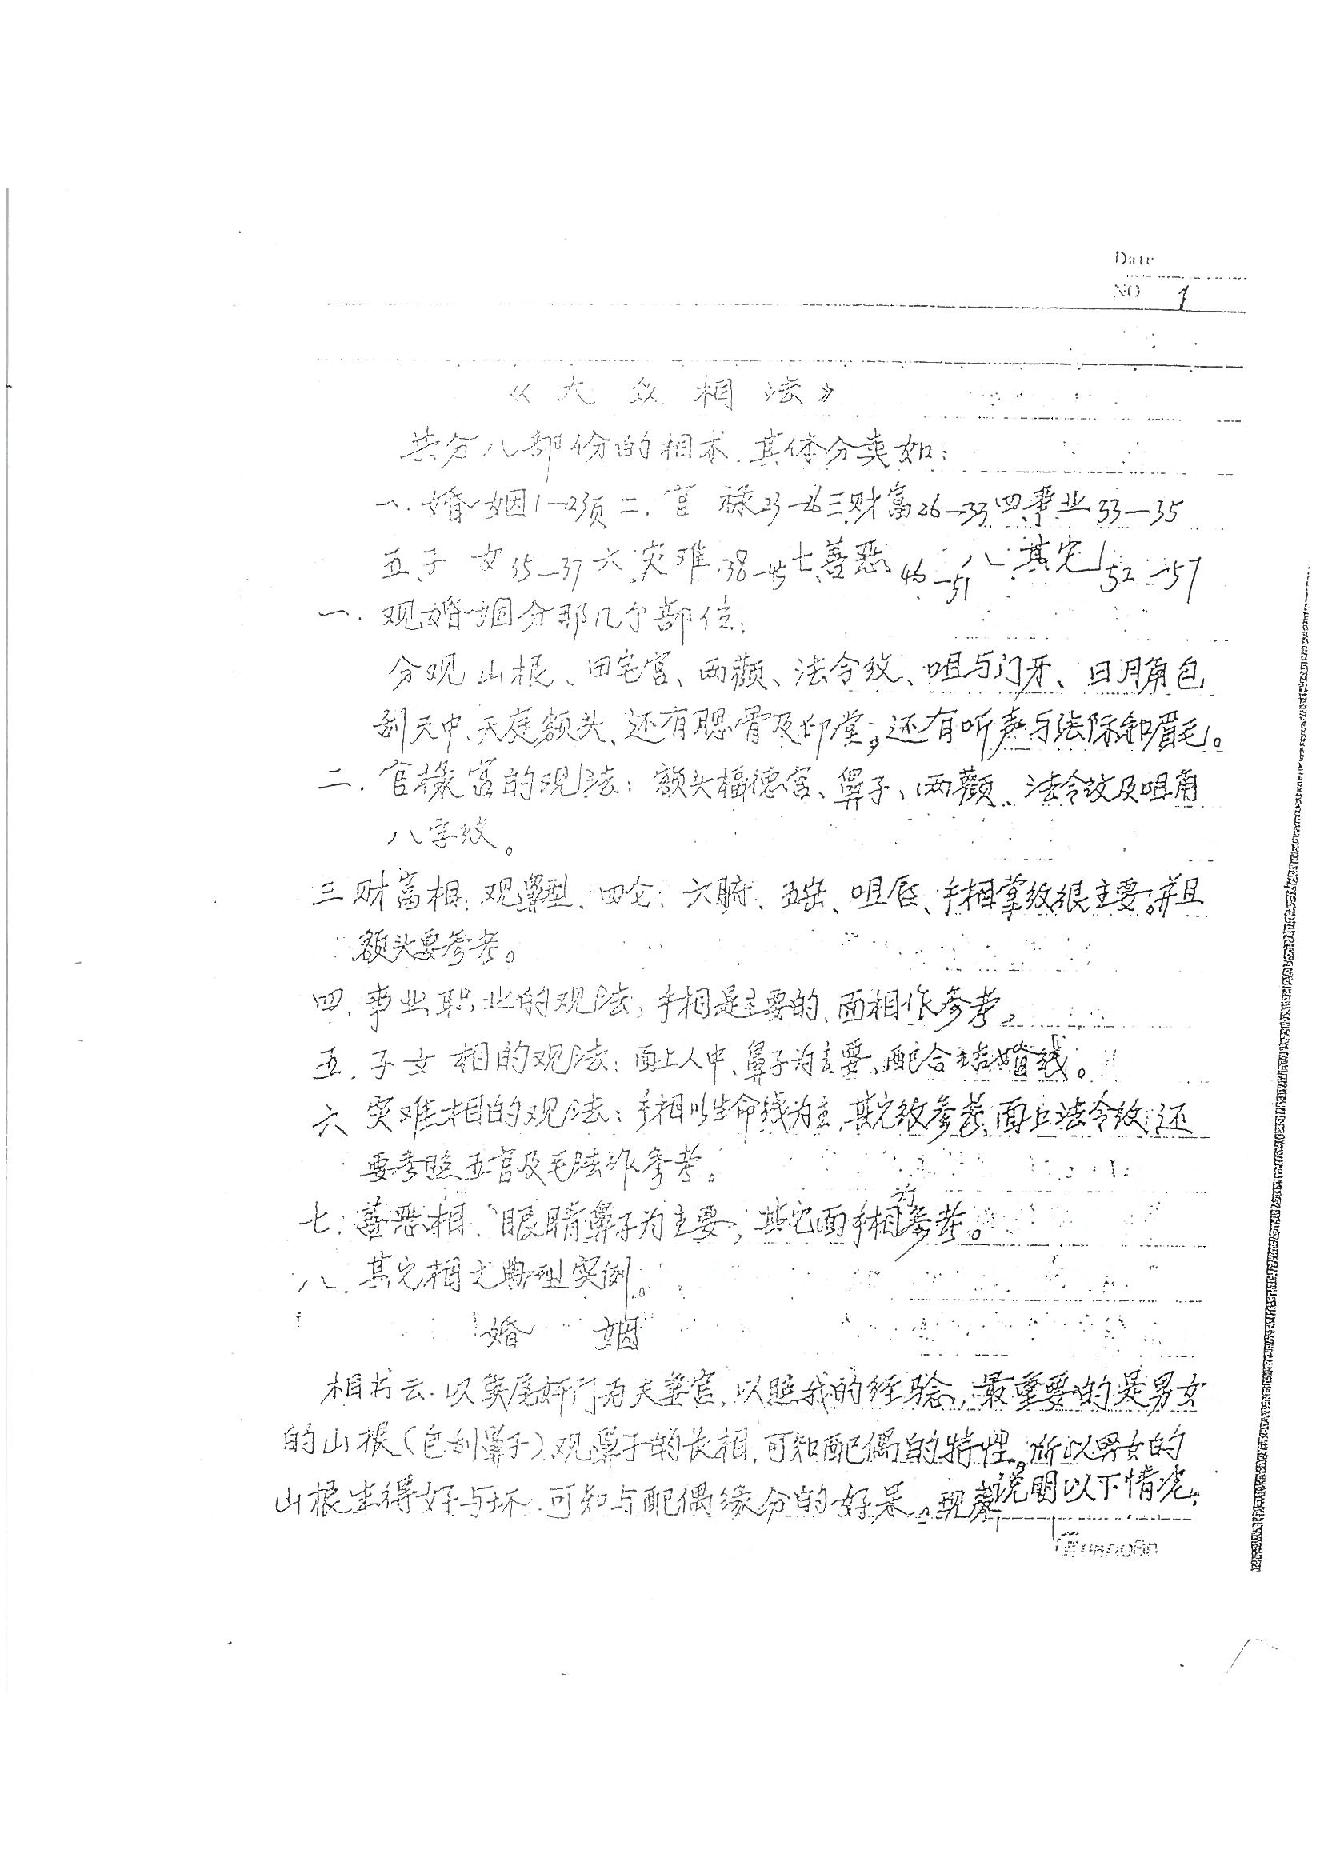 Date
NO 1
《大众相法》
共分八部份的相术.其体分类如:
一.婚姻1—23页二.官禄23—26三.财富26—33四事业33—35
五.子女35—37六灾难.38—45七善恶46—51八其它52—57
一.观婚姻分那几个部位:
分观山根、田宅宫、两颧、法令纹、咀与门牙、日月角包
刮天中.天庭额头、还有腮骨及印堂;还有听声与法际和眉毛。
二.官禄宫的观法:额头福德宫、鼻子、两颧、法令纹及咀角
八字纹。
三财富相:观鼻型、四仓、六腑、五岳、咀唇、手相掌纹很主要.并且
额头要参考。
四.事业职业的观法;手相是主要的.面相作参考。
五.子女相的观法:面上人中、鼻子为主要、配合结婚线。
六灾难相的观法:手相以生命线为主.其它纹参考.面上法令纹;还
要参照五官及毛法作参考。
七.善恶相、眼睛鼻子为主要;其它面手相为参考。
八.其它相之典型实例。
婚姻
相书云.以鱼尾奸门为夫妻宫.以照我的经验,最重要的是男女
的山根(包刮鼻子)观鼻子的长相.可知配偶的特性。所以男女的
山根生得好与坏.可知与配偶缘分的好呆。现举说明以下情况: